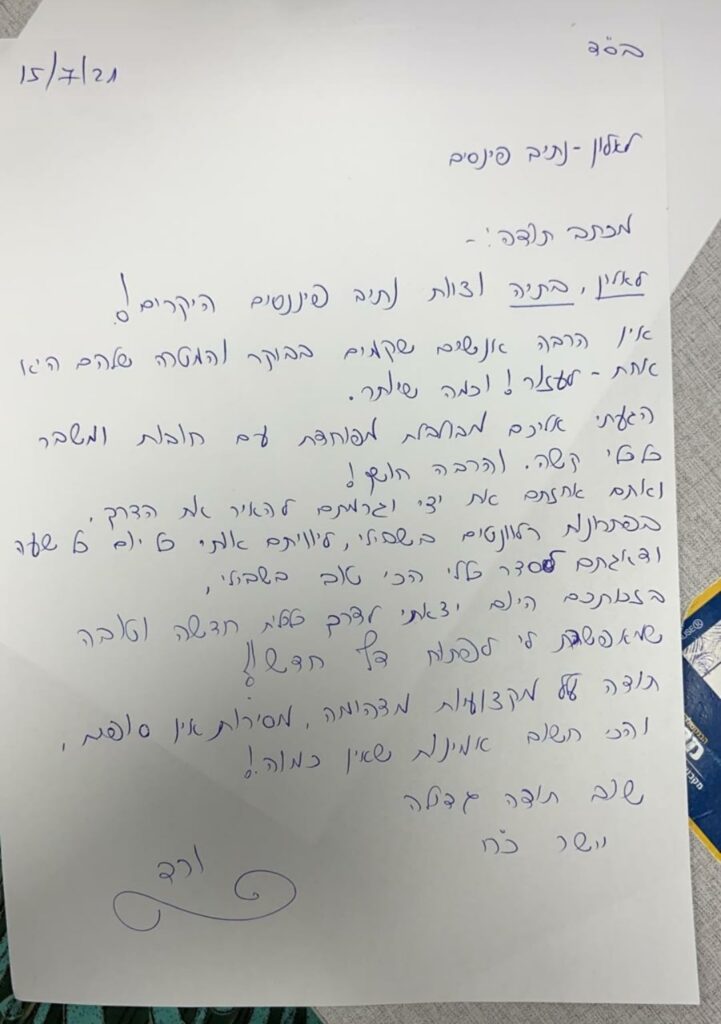 בס"ד
15/7/21
לאלון - נתיב פינסים
מכתב תודה:-
לאלין, בתיה וצוות נתיב פיננסים היקרים!
אין הרבה אנשים שקמים בבוקר והמטרה שלהם היא
אחת - לעזור! וכמה שיותר.
הגעתי אליכם מבולבלת מפוחדת עם חובות ומשבר
כלכלי קשה. והרבה חושך!
ואתם אחזתם את ידי וגרמתם להאיר את הדרך,
בפתרונות רלוונטים בשבילי, ליוויתם אותי כל יום כל שעה
ודאגתם לסדר כללי הכי טוב בשבילי,
בזכותכם היום יצאתי לדרך כללית חדשה וטובה
שמאפשרת לי לפתוח דף חדש!!
תודה על מקצועיות מדהימה, מסירות אין סופית,
והכי חשוב אמינות שאין כמוה!
שוב תודה גדולה
יישר כ"ח
ורד